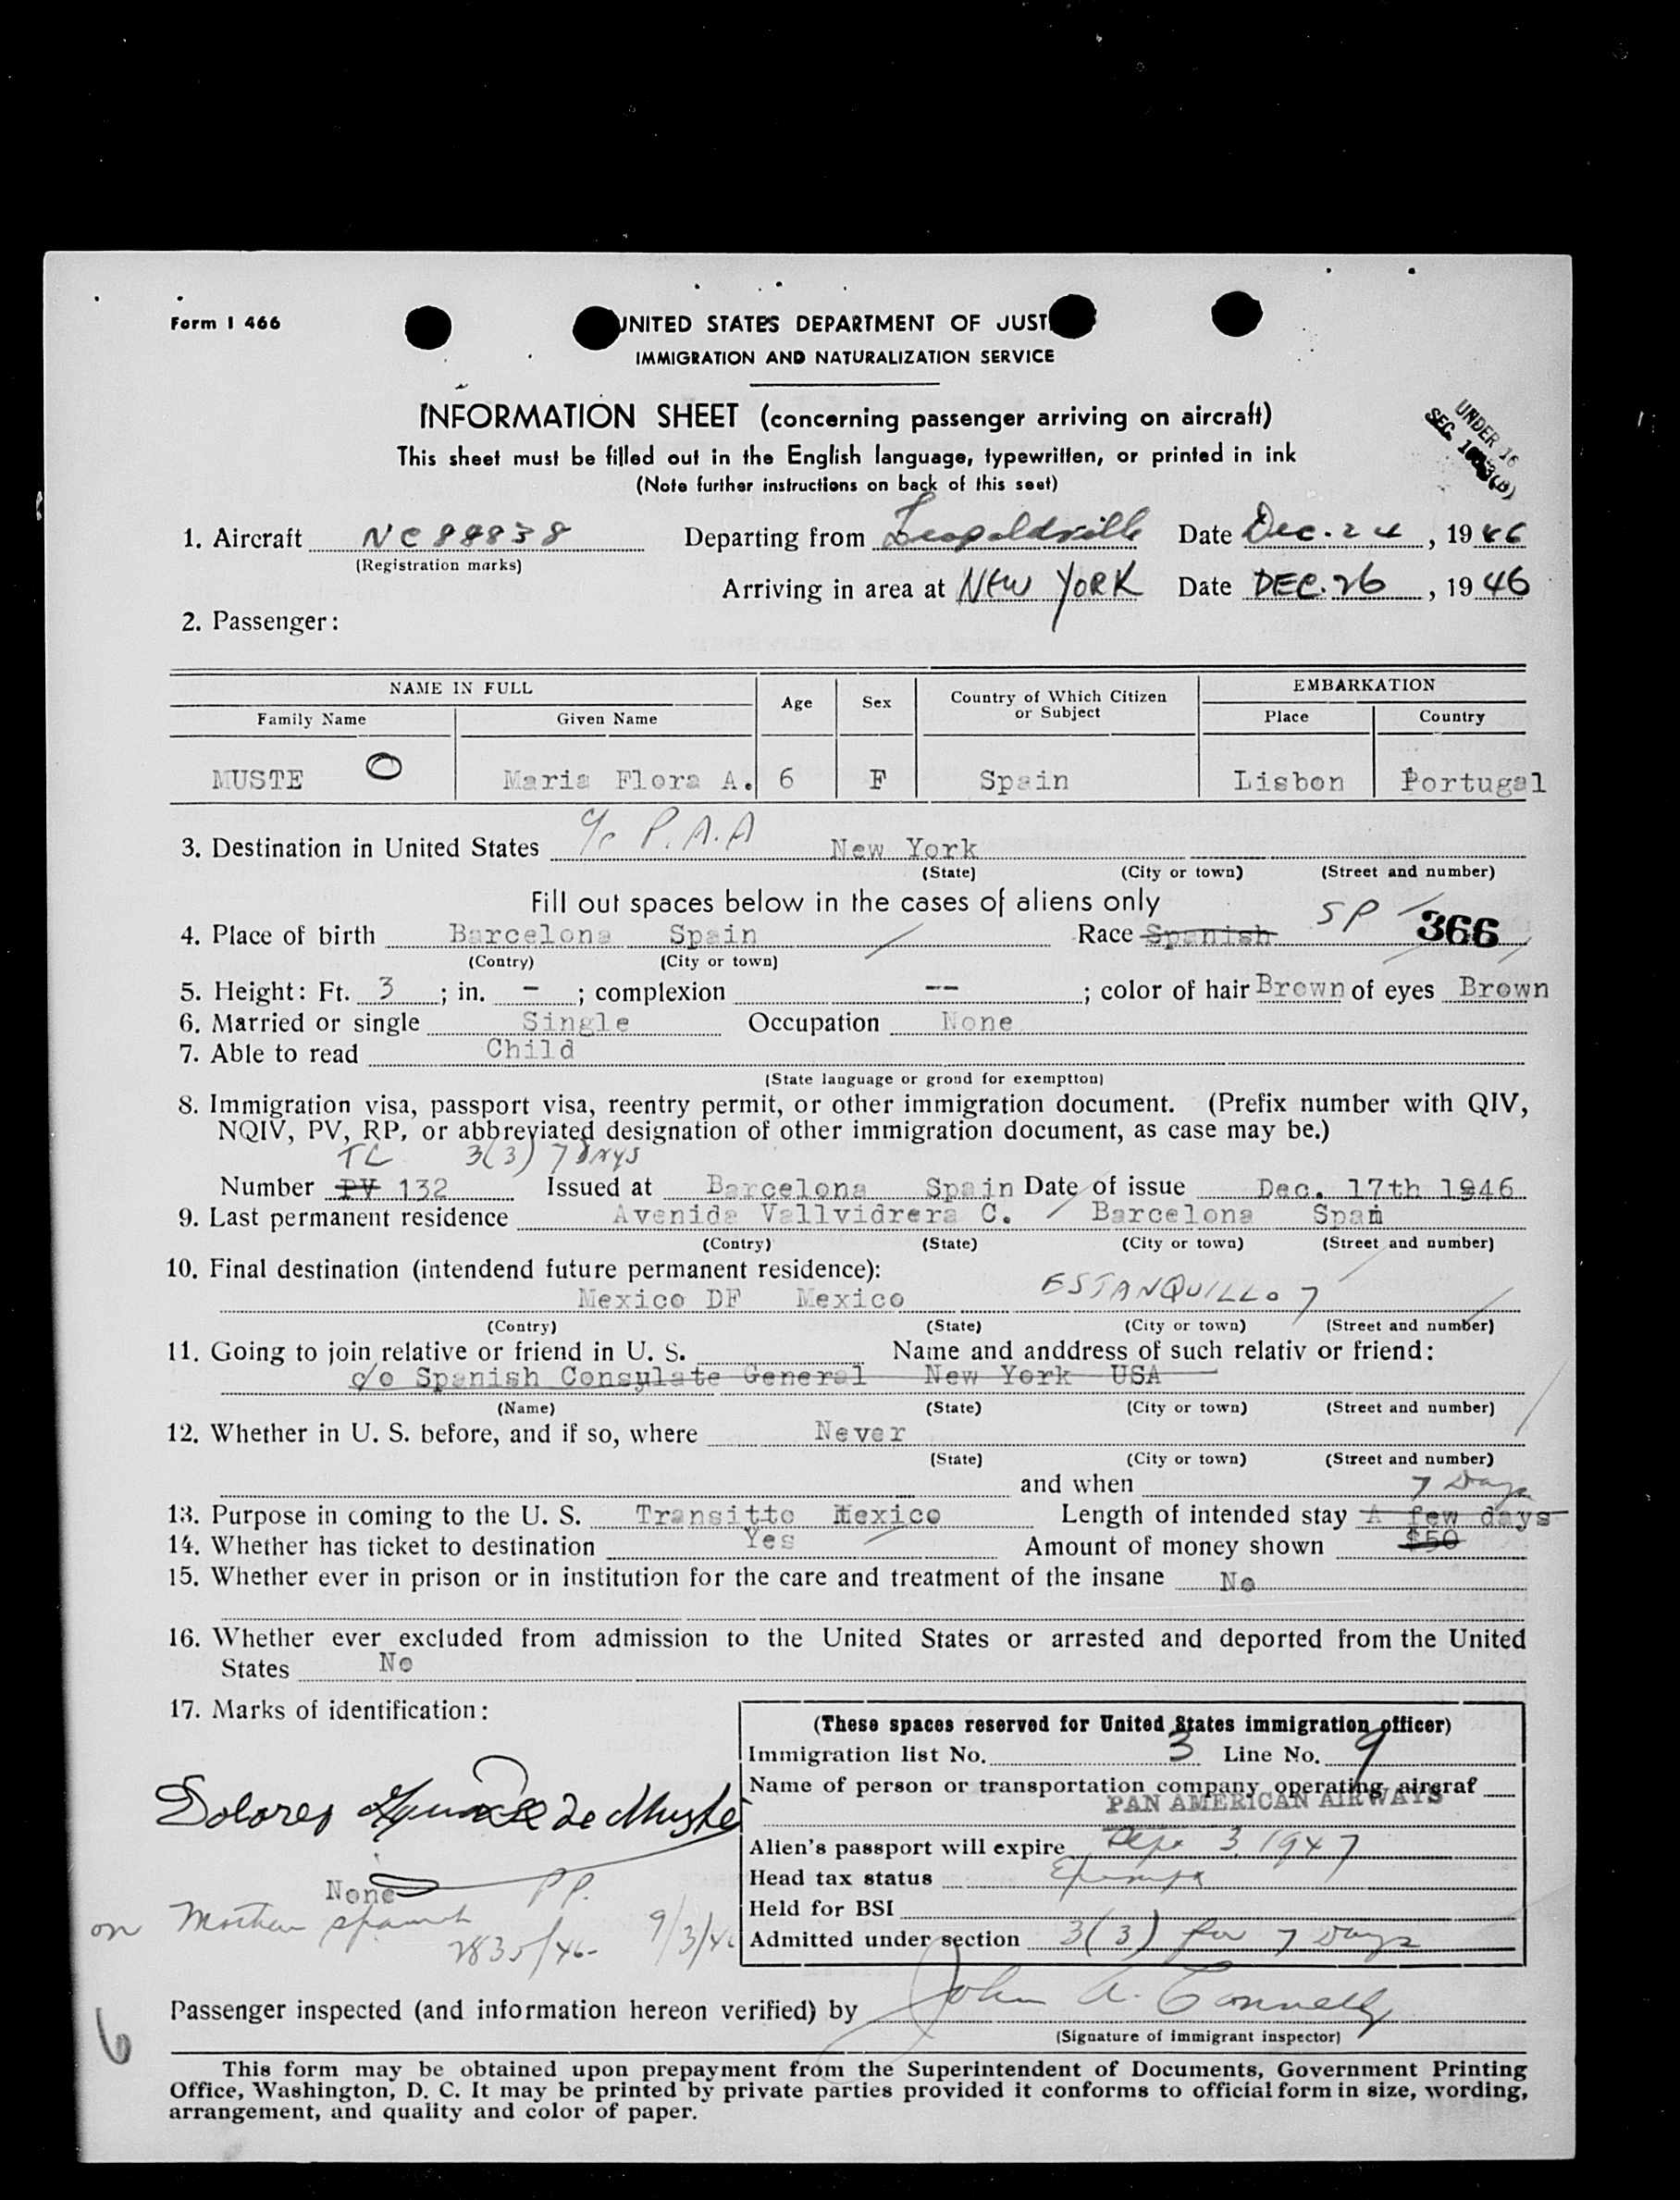 Form I 466
UNITED STATES DEPARTMENT OF JUST
IMMIGRATION AND NATURALIZATION SERVICE
INFORMATION SHEET (concerning passenger arriving on aircraft)
This sheet must be filled out in the English language, typewritten, or printed in ink
(Note further instructions on back of this seet)
UNDER 16
SEC.
1. Aircraft NC88838 Departing from Leopoldville Date Dec. 24, 1946
(Registration marks)
Arriving in area at NEW YORK Date DEC. 26, 1946
2. Passenger:
NAME IN FULL Age Sex Country of Which Citizen or Subject EMBARKATION
Family Name Given Name Place Country
MUSTE O Maria Flora A. 6 F Spain Lisbon Portugal
3. Destination in United States c/o P.A.A New York
(State) (City or town) (Street and number)
Fill out spaces below in the cases of aliens only
4. Place of birth Barcelona Spain Race Spanish SP 366
(Contry) (City or town)
5. Height: Ft. 3 ; in. - ; complexion -- ; color of hair Brown of eyes Brown
6. Married or single Single Occupation None
7. Able to read Child
(State language or groud for exemptton)
8. Immigration visa, passport visa, reentry permit, or other immigration document. (Prefix number with QIV,
NQIV, PV, RP, or abbreviated designation of other immigration document, as case may be.)
TC 3(3) 7 DAYS
Number PV 132 Issued at Barcelona Spain Date of issue Dec. 17th 1946
9. Last permanent residence Avenida Vallvidrera C. Barcelona Spain
(Contry) (State) (City or town) (Street and number)
10. Final destination (intendend future permanent residence):
Mexico DF Mexico ESTANQUILLO 7
(Contry) (State) (City or town) (Street and number)
11. Going to join relative or friend in U. S. Name and anddress of such relativ or friend:
c/o Spanish Consulate General New York USA
(Name) (State) (City or town) (Street and number)
12. Whether in U. S. before, and if so, where Never
(State) (City or town) (Street and number)
and when
7 Days
13. Purpose in coming to the U. S. Transitto Mexico Length of intended stay A few days
14. Whether has ticket to destination Yes Amount of money shown $50
15. Whether ever in prison or in institution for the care and treatment of the insane No
16. Whether ever excluded from admission to the United States or arrested and deported from the United
States No
17. Marks of identification:
(These spaces reserved for United States immigration officer)
Immigration list No. 3 Line No. 9
Name of person or transportation company operating airsraf
PAN AMERICAN AIRWAYS
Dolores de Muste
Alien's passport will expire Sept 3, 1947
Head tax status Exempt
None PP.
Held for BSI
on Mother Spanish
2835/46- 9/3/46
Admitted under section 3(3) for 7 Days
Passenger inspected (and information hereon verified) by John A. Connelly
(Signature of immigrant inspector)
6
This form may be obtained upon prepayment from the Superintendent of Documents, Government Printing
Office, Washington, D. C. It may be printed by private parties provided it conforms to official form in size, wording,
arrangement, and quality and color of paper.